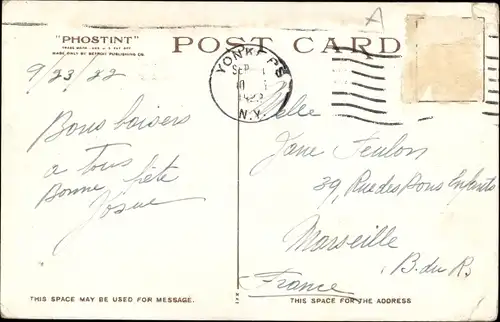 "PHOSTINT"
TRADE MARK REG. U.S. PAT. OFF.
MADE ONLY BY DETROIT PUBLISHING CO.
POST CARD
A
YONKERS
SEP
N.Y.
9/23/22
Bons baisers
a tous
Bonne fête
Josue
Melle
Jane Feulon
39, Rue des Bons Enfants
Marseille
B. du R.
France
THIS SPACE MAY BE USED FOR MESSAGE.
THIS SPACE FOR THE ADDRESS